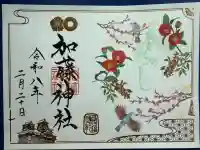 加藤神社
令和八年
二月二十日